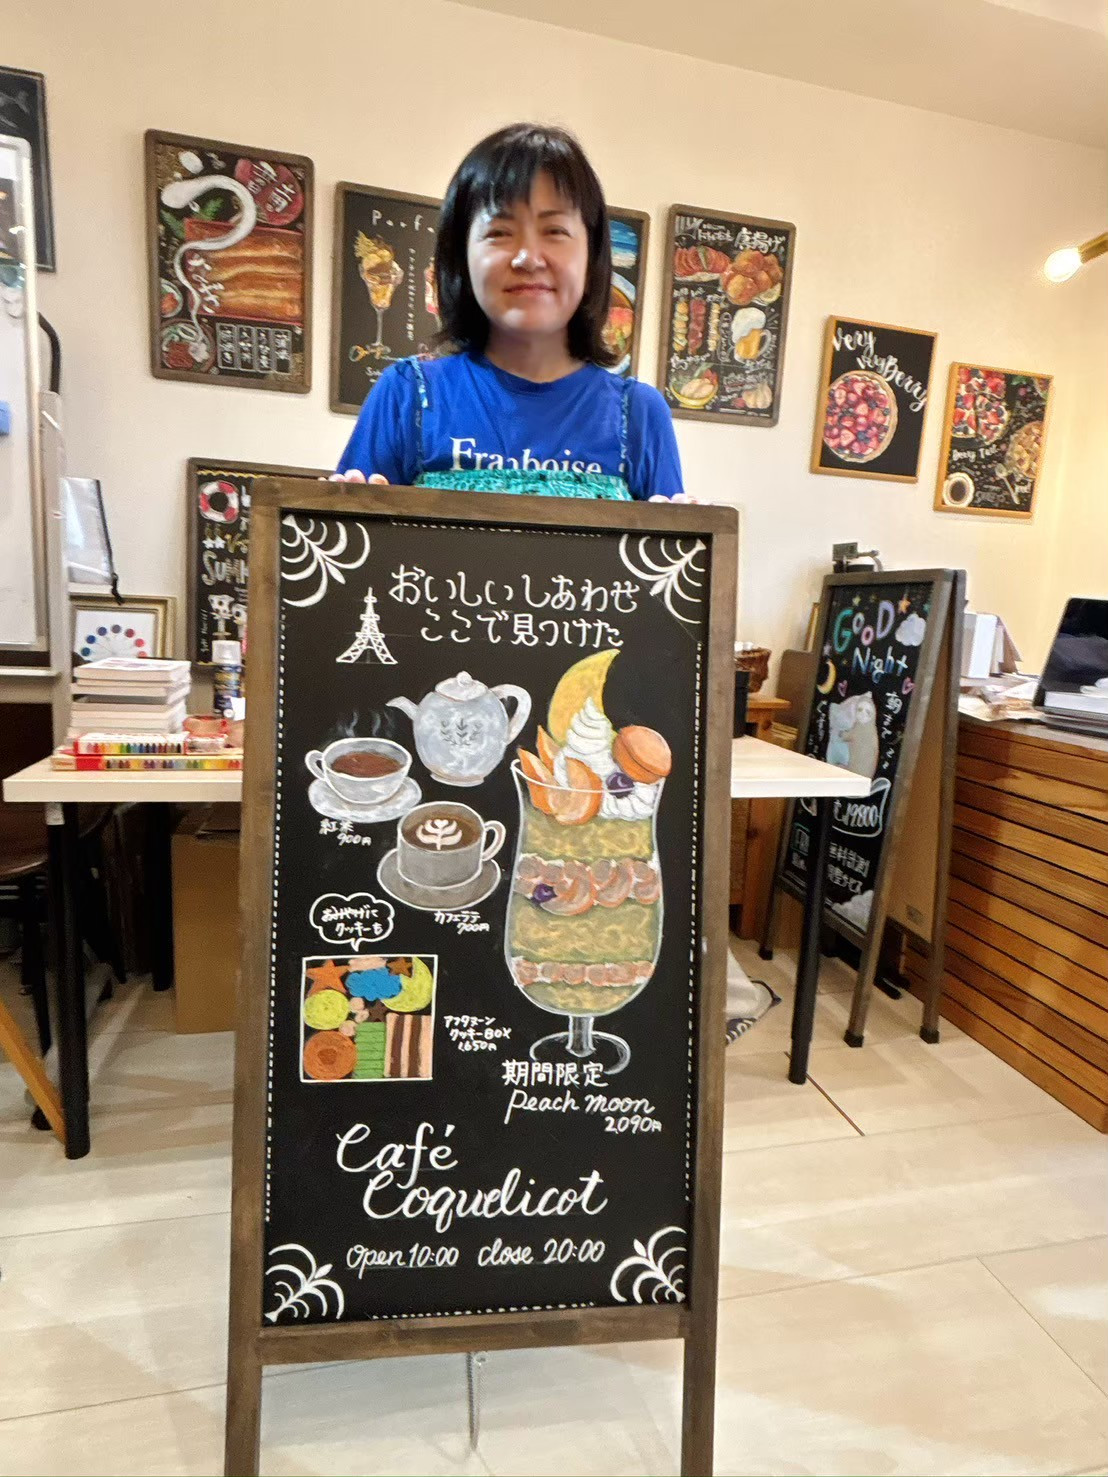 おいしいしあわせ
ここで見つけた
紅茶
900円
カフェラテ
700円
おみやげに
クッキーも
アフタヌーン
クッキーBOX
1,650円
期間限定
Peach moon
2,090円
Café
Coquelicot
open 10:00 close 20:00
Framboise
Parf
唐揚げ
Very
Very Berry
GOOD
Night
朝まで
¥19800